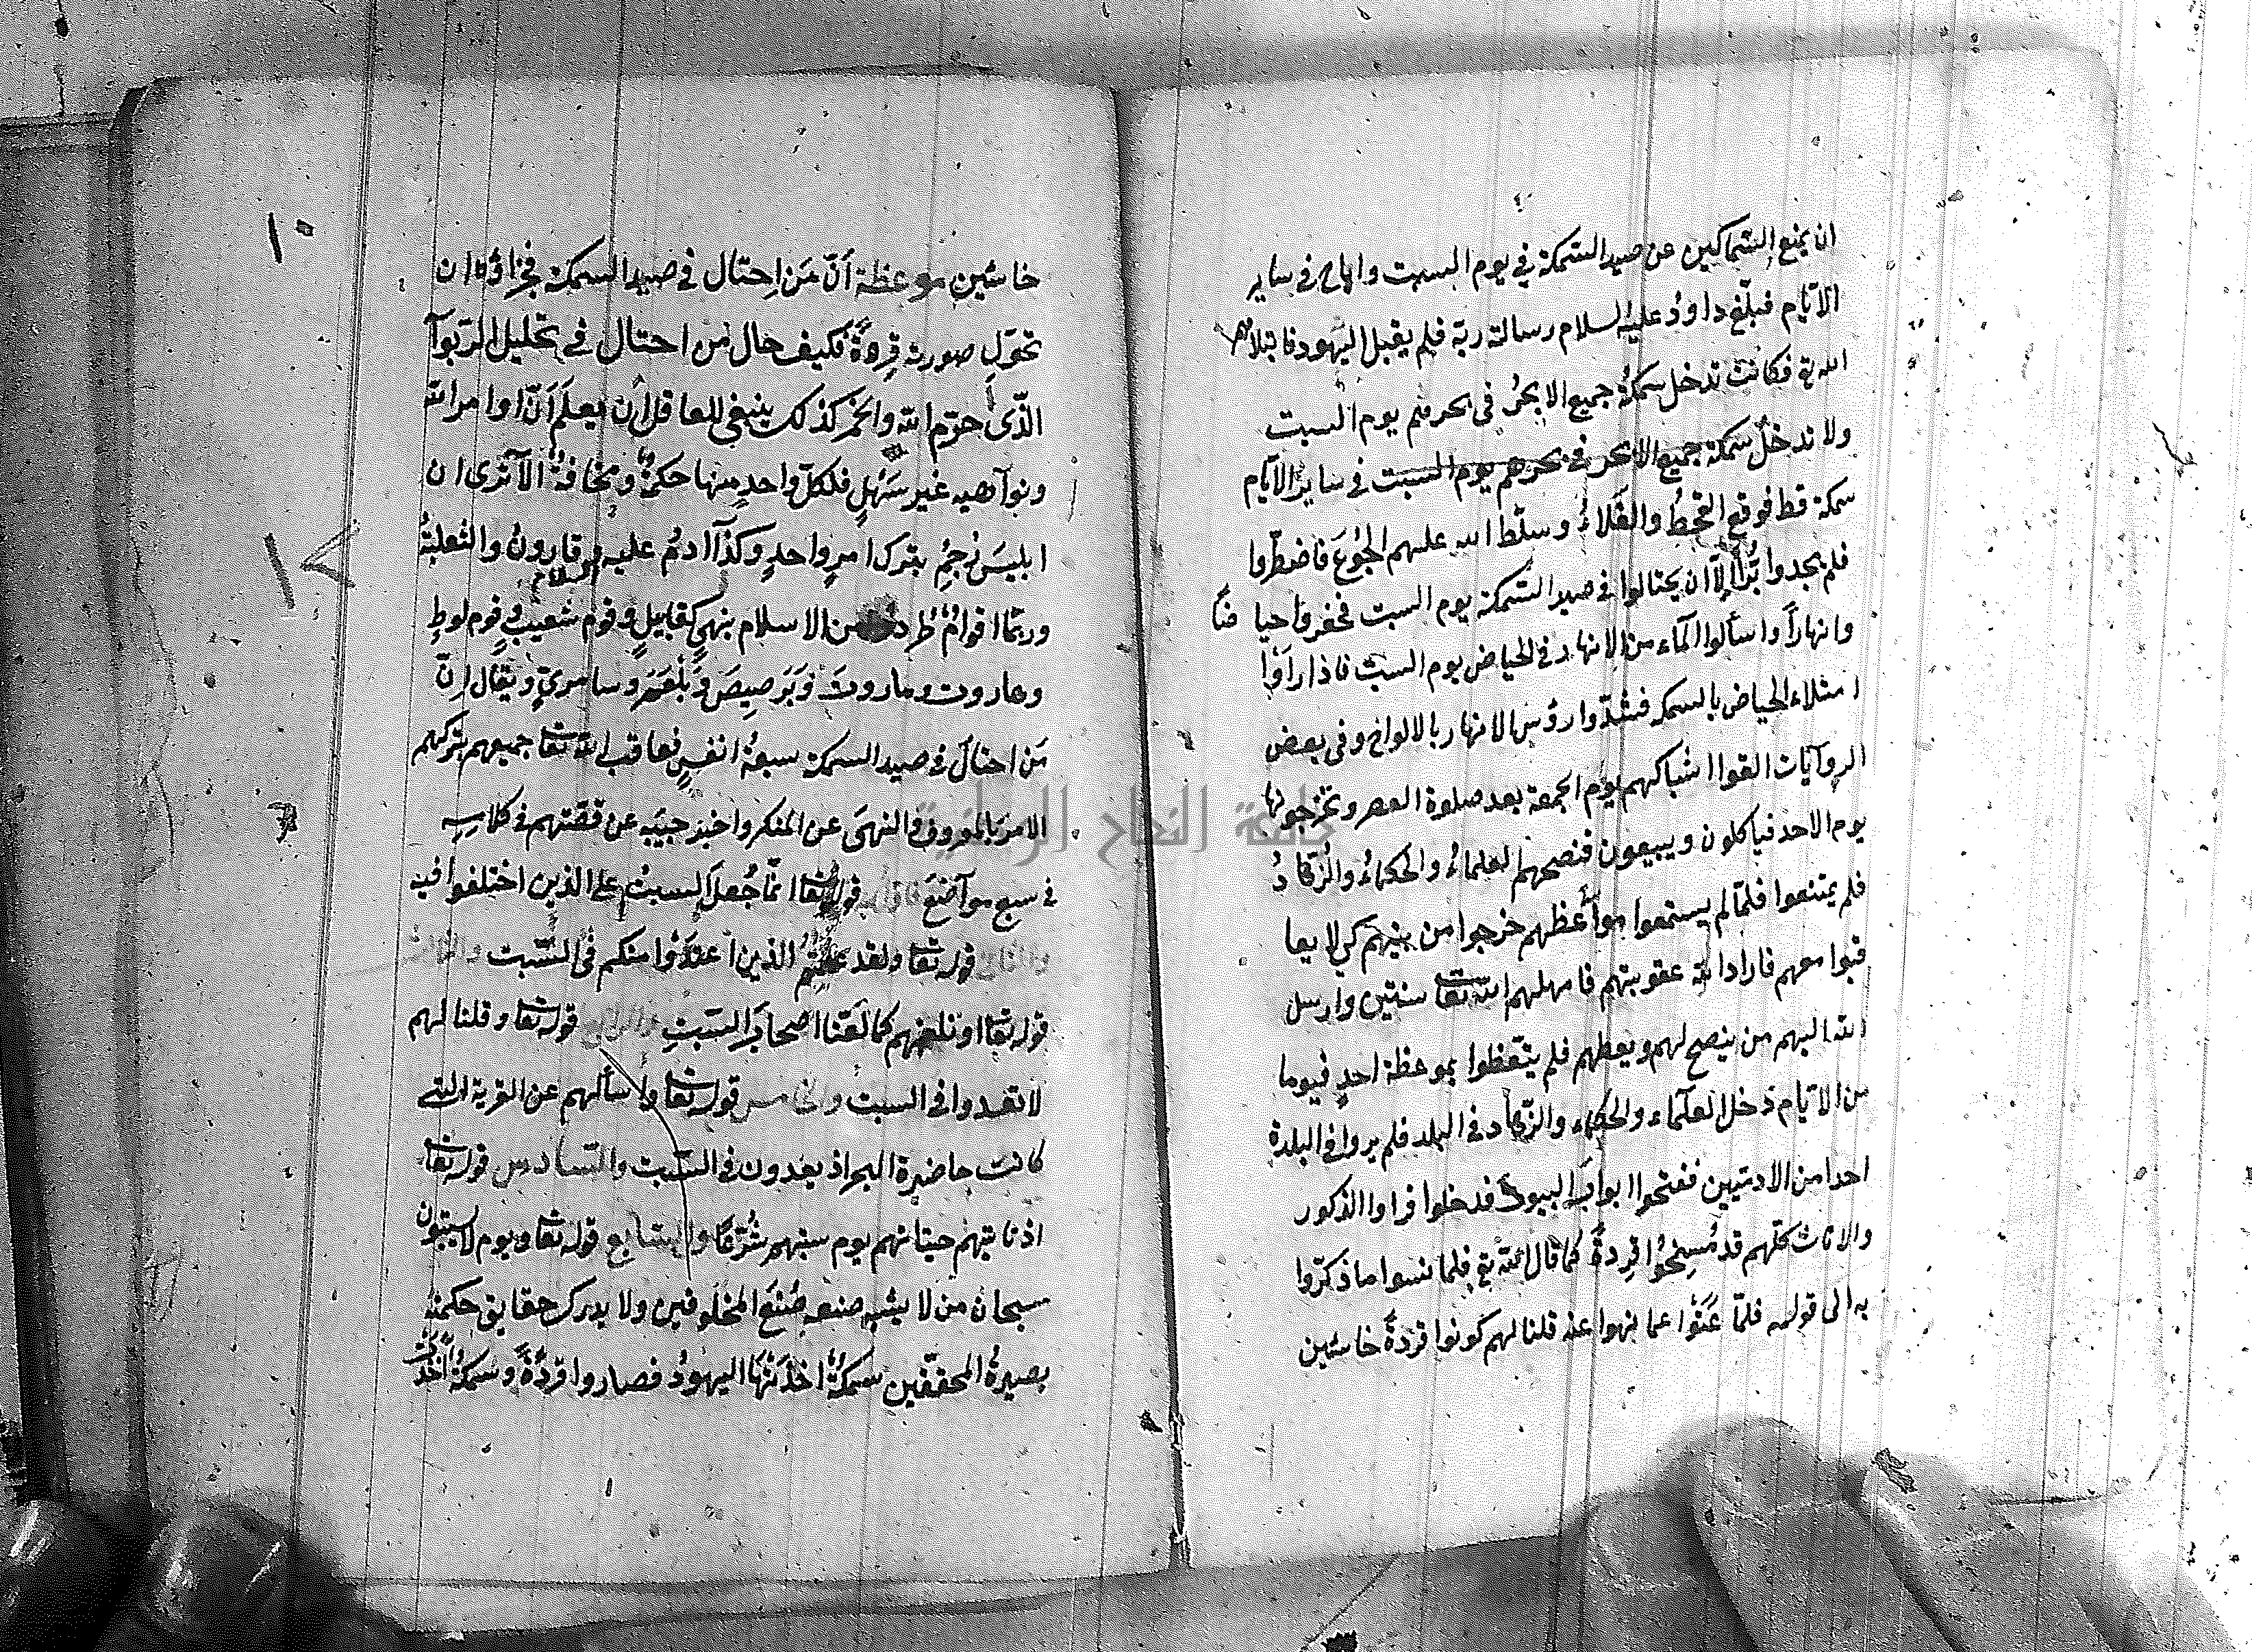 ان يمنع السماكين عن صيد السمكة في يوم السبت واباح في ساير
الايام فبلّغ داود عليه السلام رسالة ربه فلم يقبل اليهود فابتلاهم
الله تع فكانت تدخل سمكة جميع الابحر في بحرهم يوم السبت
ولا تدخل سمكة جميع الابحر في بحرهم يوم السبت في ساير الايام
سمكة قط فوقع القحط والغلاء وسلّط الله عليهم الجوع فاضطروا
فلم يجدوا بُدّا الّا ان يحتالوا في صيد السمكة يوم السبت فحفروا حياضًا
وانهارًا واسألوا الماء من الانهار في الحياض يوم السبت فاذا رأوا
امتلاء الحياض بالسمك فشدّوا رؤس الانهار بالالواح وفي بعض
الروايات القوا اشباكهم يوم الجمعة بعد صلوة العصر وتخرجونها
يوم الاحد فياكلون ويبيعون فنصحهم العلماءُ والحكماءُ والزّهّادُ
فلم يمتنعوا فلمّا لم يستمعوا مواعظهم خرجوا من بينهم كي لا يعا
قبوا معهم فاراد الله عقوبتهم فامهلهم الله تعا سنتين وارسل
الله اليهم من ينصح لهم ويعظهم فلم يتّعظوا بموعظة احدٍ فيوما
من الايام دخل العلماء والحكماء والزّهاد في البلد فلم يروا في البلدة
احدا من الادميين ففتحوا ابواب البيوت فدخلوا فراوا الذكور
والاناث كلّهم قد مُسِخُوا قِردةً كما قال الله تع فلما نسوا ما ذكّروا
به الى قوله فلمّا عَتَوْا عما نهوا عنه قلنا لهم كونوا قردةً خاسئين
١٠
خاسئين موعظة أنّ مَن اِحتال في صيد السمكة فجزاؤه ان
تحوّل صورته قِردةً فكيف حال من احتال في تحليل الرّبوآ
الّذى حرّم الله والخمر كذلك ينبغى للعاقل ان يعلَم أنّ اوامر الله
ونواهيه غير سَهْلٍ فلكلّ واحدٍ منها حكمةٌ ومخافةٌ الا ترى ان
ابليسَ رُجِمَ بترك امرٍ واحدٍ وكذا آدمُ عليه السلام وقارونُ والثعلبةُ
وربّما اقوامٌ طرد من الاسلام بنهىٍ كقابيلٍ وقوم شعيبٍ وقوم لوطٍ
وهاروت وماروتَ وَبَرصِيصَ وَبَلْعَمَ وسامرىٍّ ويقال اِنّ
مَن احتال في صيد السمكة سبعةُ انفسٍ فعاقب الله تعا جميعهم بتركهم
الامرَ بالمعروف والنهىَ عن المنكر واخبرَ حبيبَه عن قصّتهم في كلامِه
في سبع مواضع قوله تعا انّما جُعلَ السبتُ على الذين اختلفوا فيه
والثانى قوله تعا ولقد علمتم الذين اعتدَوْا منكم في السّبت والثالث
قوله تعا او نلعنهم كما لعَنّا اصحابَ السّبتِ والرابع قوله تعا وقلنا لهم
لا تعدوا في السبت والخامس قوله تعا واسألهم عن القرية التى
كانت حاضرة البحر اذ يعدون في السّبت والسّادس قوله تعا
اذ تاتيهم حيتانهم يوم سبتهم شُرّعًا والسّابع قوله تعا ويوم لا يسبتون
سبحان من لا يشبه صنعه صُنعَ المخلوقين ولا يدرك حقايق حكمته
بصيرةُ المحقّقين سمكةٌ اخذتْها اليهودُ فصاروا قردةً وسمكةٌ اخذت